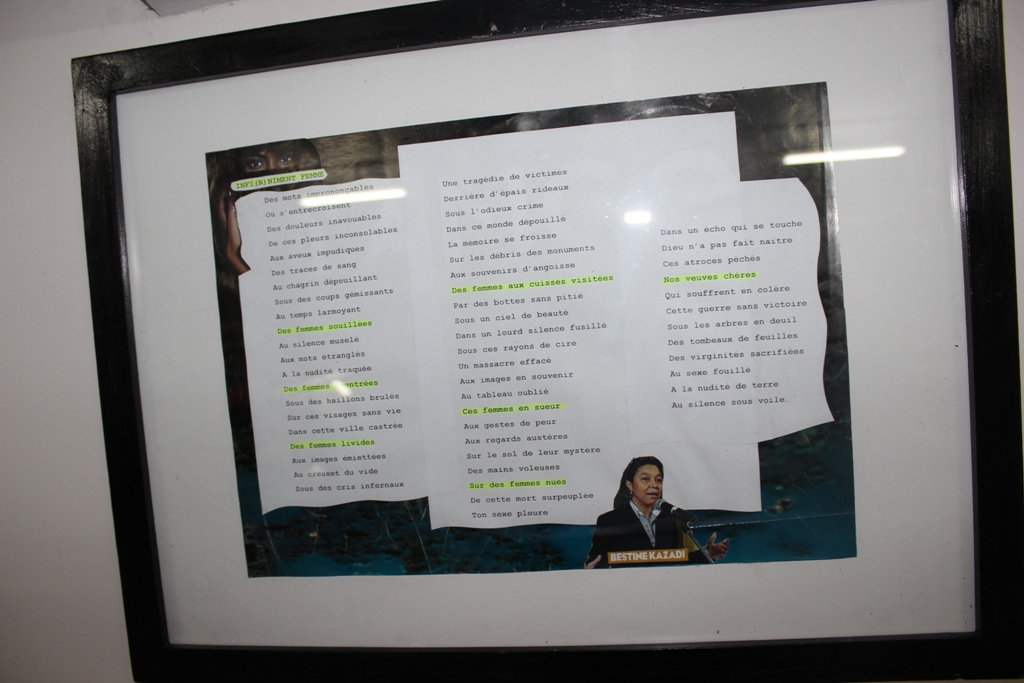 INFI(R)NIMENT FEMME
Des mots imprononçables
Où s'entrecroisent
Des douleurs inavouables
De ces pleurs inconsolables
Aux aveux impudiques
Des traces de sang
Au chagrin dépouillant
Sous des coups gémissants
Au temps larmoyant
Des femmes souillées
Au silence muselé
Aux mots étranglés
A la nudité traquée
Des femmes
Sous des haillons brulés
Sur ces visages sans vie
Dans cette ville castrée
Des femmes livides
Aux images émiettées
Au creuset du vide
Sous des cris infernaux
Une tragédie de victimes
Derrière d'épais rideaux
Sous l'odieux crime
Dans ce monde dépouillé
La mémoire se froisse
Sur les débris des monuments
Aux souvenirs d'angoisse
Des femmes aux cuisses visitées
Par des bottes sans pitié
Sous un ciel de beauté
Dans un lourd silence fusillé
Sous ces rayons de cire
Un massacre effacé
Aux images en souvenir
Au tableau oublié
Ces femmes en sueur
Aux gestes de peur
Aux regards austères
Sur le sol de leur mystère
Des mains voleuses
Sur des femmes nues
De cette mort surpeuplée
Ton sexe pleure
Dans un écho qui se touche
Dieu n'a pas fait naître
Ces atroces péchés
Nos veuves chères
Qui souffrent en colère
Cette guerre sans victoire
Sous les arbres en deuil
Des tombeaux de feuilles
Des virginités sacrifiées
Au sexe fouillé
A la nudité de terre
Au silence sous voile…
BESTINE KAZADI